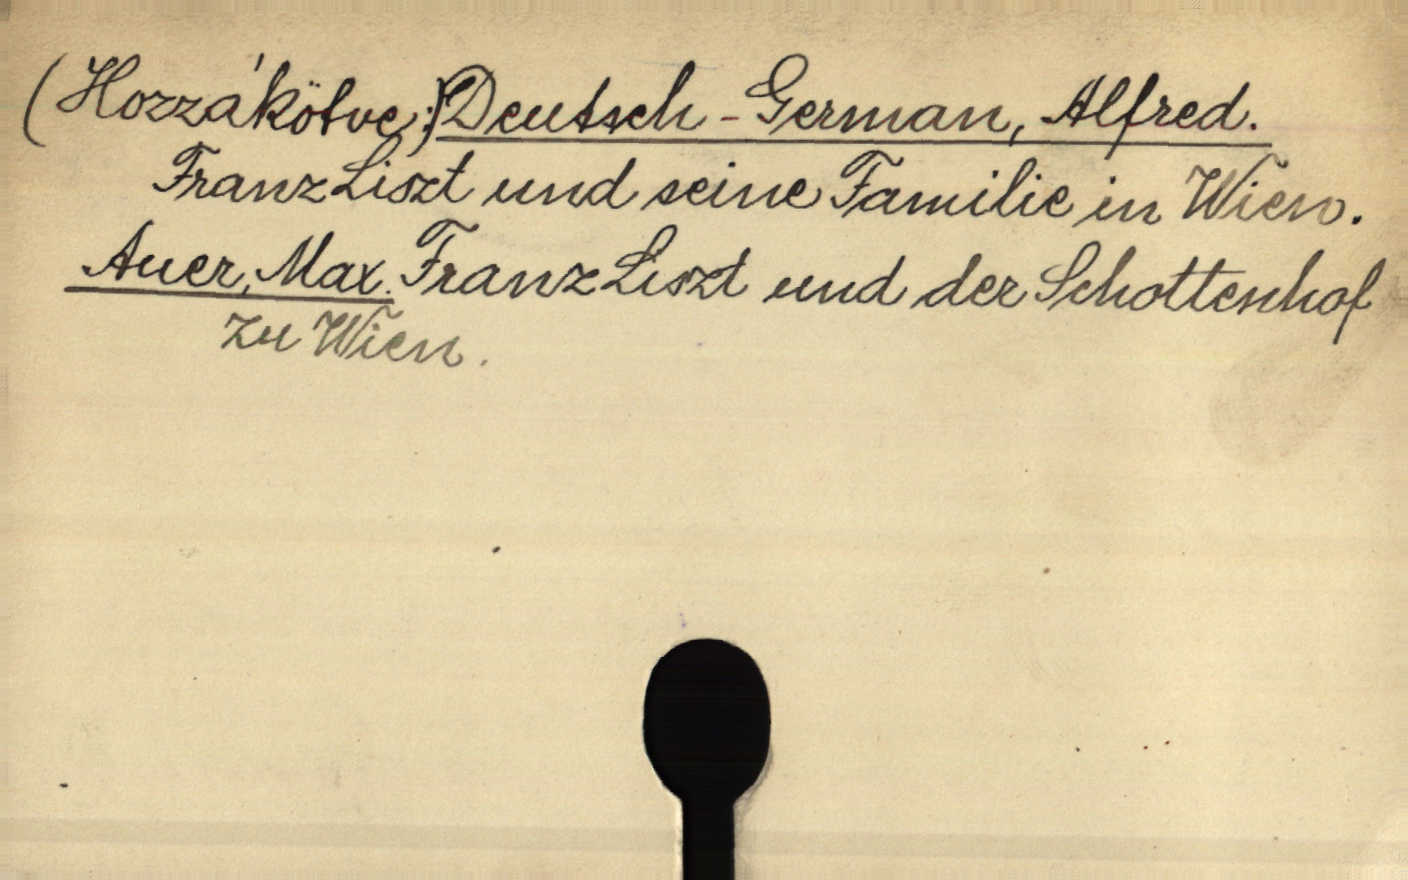 (Hozzákötve:) Deutsch-German, Alfred.
Franz Liszt und seine Familie in Wien.
Auer, Max. Franz Liszt und der Schottenhof
zu Wien.